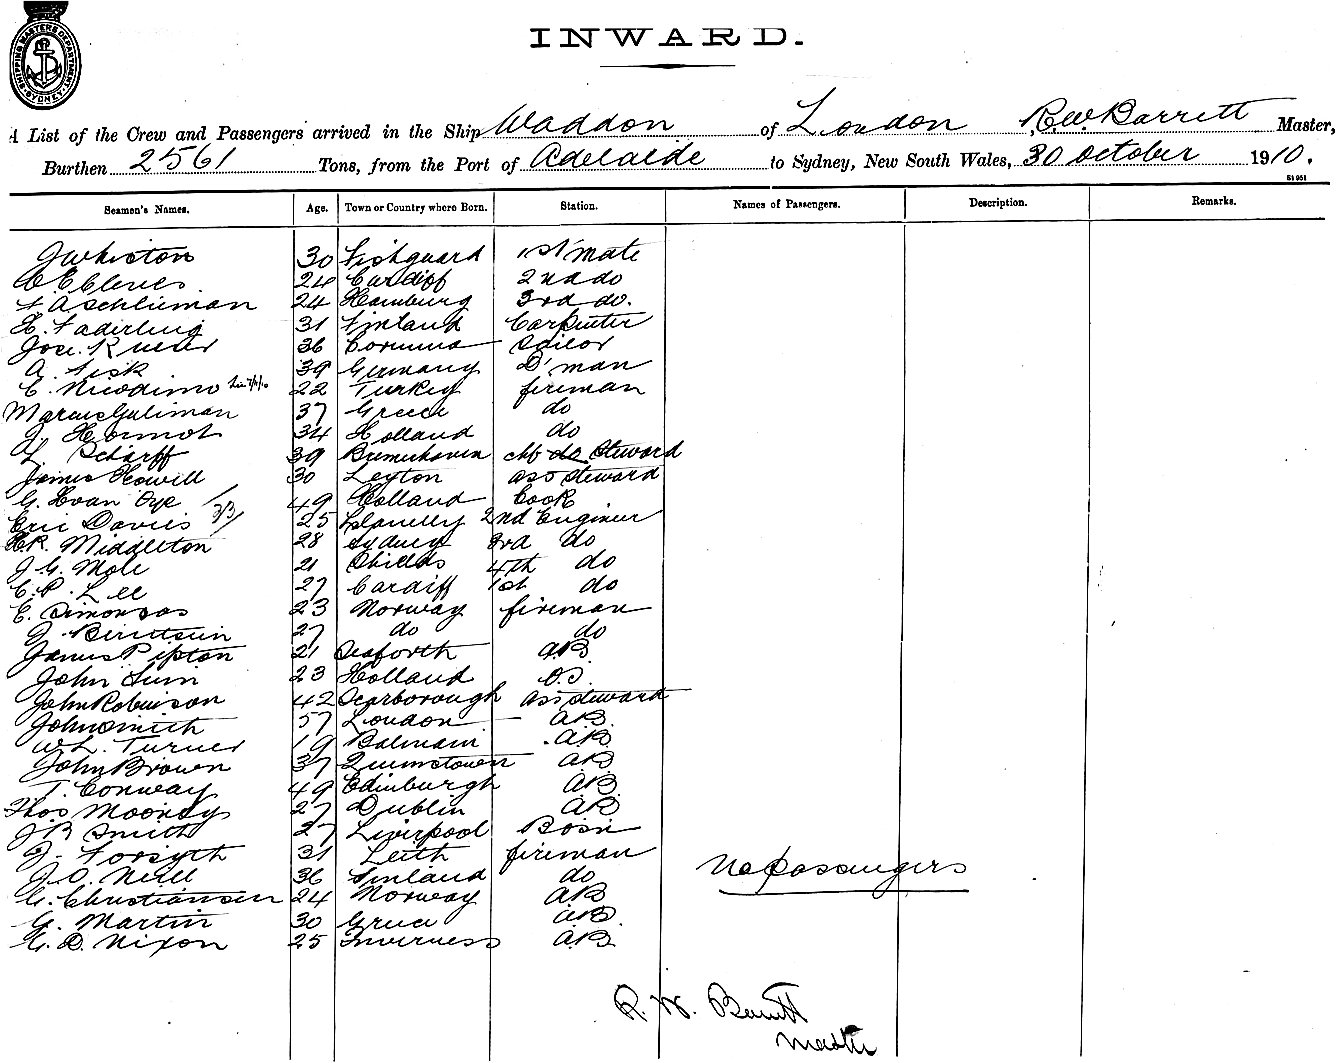 SHIPPING MASTERS DEPARTMENT SYDNEY
INWARD.
A List of the Crew and Passengers arrived in the Ship Waddon of London R.W. Barrett Master,
Burthen 2561 Tons, from the Port of Adelaide to Sydney, New South Wales, 30 October 1910.
51951
Seamen's Names. Age. Town or Country where Born. Station. Names of Passengers. Description. Remarks.
J Whiston 30 Fishguard 1st mate
24 Cardiff 2nd do
F A Schlieman 24 Hamburg 3rd do.
31 Finland Carpenter
Jose 36 Corunna Sailor
A. Fisk 39 Germany D'man
E. Nicodimo 22 Turkey fireman
Marcus Guliman 37 Greece do
J. 34 Holland do
L. Scharff 39 Bremerhaven ch do Steward
James Howell 30 Leyton ass Steward
G. H van Oye 49 Holland Cook
Eric Davies 25 Llanelly 2nd Engineer
H.R. Middleton 28 Sydney 3rd do
J. G. Mole 21 Shields 4th do
C. P. Lee 27 Cardiff 1st do
E. Simonsas 23 Norway fireman
J. Berntsein 27 do do
James Pipton 21 Seaforth A.B.
John 23 Holland O.S.
John Robinson 42 Scarborough ass steward
John Smith 57 London A.B.
W L. Turner 19 Balmain A.B.
John Brown 37 Queenstown AB
T. Conway 49 Edinburgh AB
Thos Mooney 27 Dublin AB
J B Smith 27 Liverpool Bosn
J. Forsyth 31 Leith fireman
J. O. Neill 36 Finland do
No passengers
G. Christiansen 24 Norway AB
G. Martin 30 Greece AB.
G. D. Nixon 25 Inverness A.B.
R. W. Barrett
Master